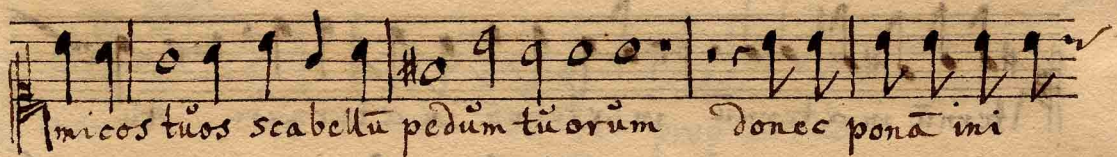 micos tŭos scabellū pedŭm tŭorŭm donec ponā ini